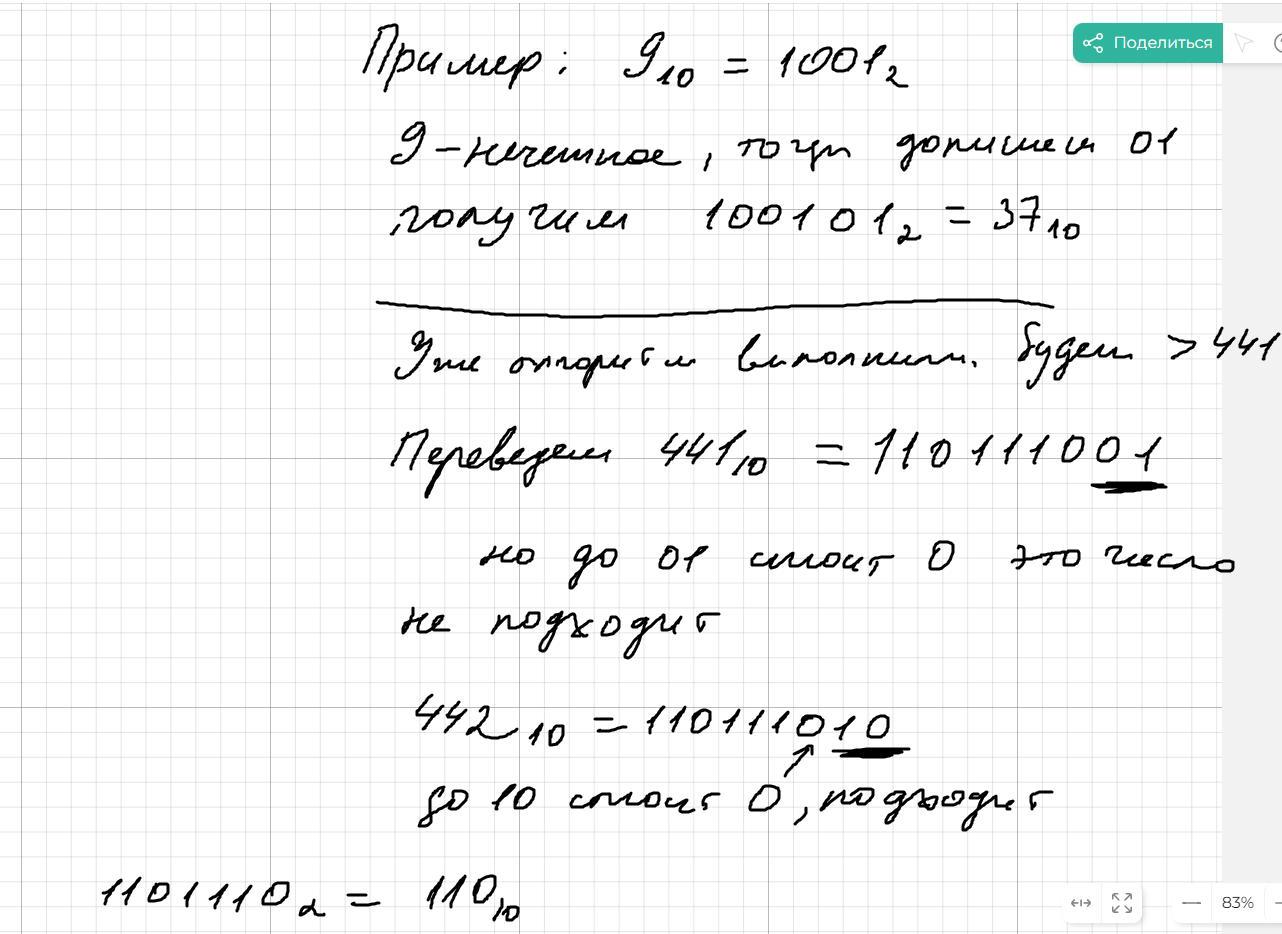 Пример: 9₁₀ = 1001₂
Поделиться
9 – нечетное, тогда допишем 01
получим 100101₂ = 37₁₀
Уже алгоритм выполним. Будем > 441
Переведем 441₁₀ = 110111001
но до 01 стоит 0 это число
не подходит
442₁₀ = 110111010
до 10 стоит 0, подходит
1101110₂ = 110₁₀
83%